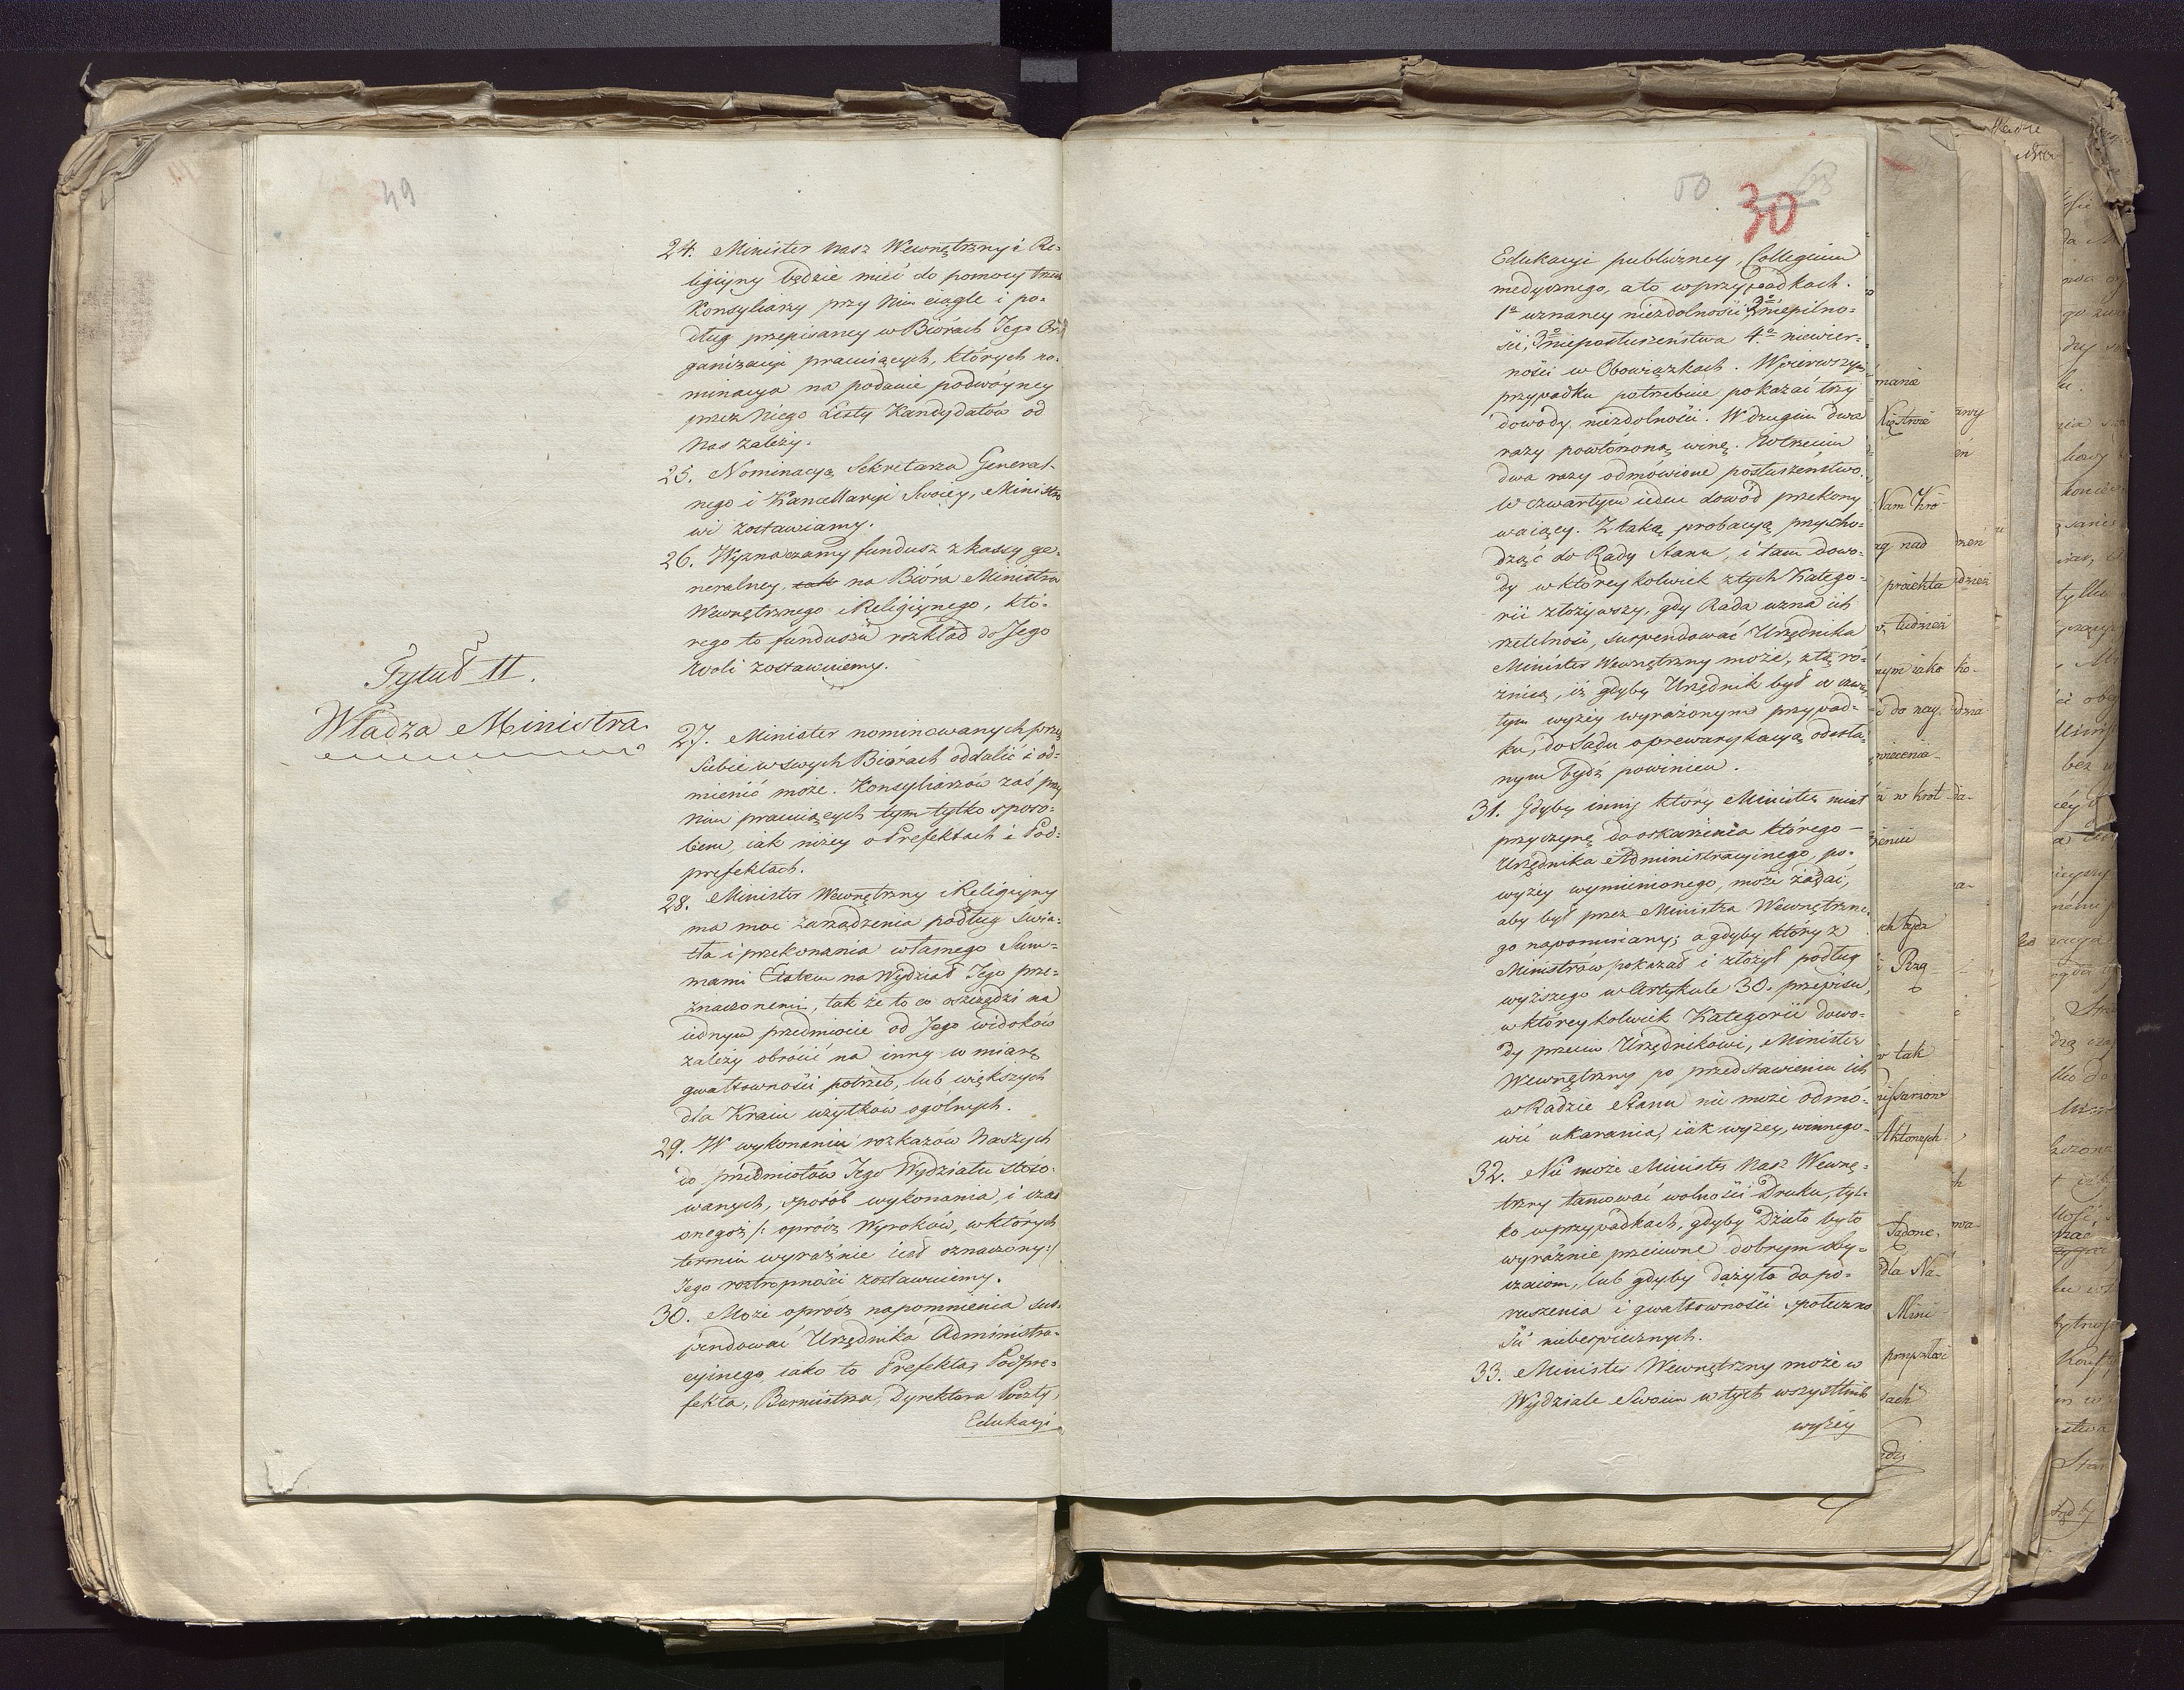 49
24. Minister Nasz Wewnętrzny i Re-
ligijny będzie mieć do pomocy trzech
Konsyliarzy przy Nim ciągle i po-
dług przepisaney w Biórach Jego Or-
ganizacyi pracuiących, których no-
minacya na podanie podwóyney
przez Niego Listy Kandydatów od
Nas zależy.
25. Nominacyą Sekretarza General-
nego i Kancellaryi Swoiey, Ministro
wi zostawiamy.
26. Wyznaczamy fundusz z kassy ge-
neralney na Bióra Ministra
Wewnętrznego i Religiynego, któ-
rego to funduszu rozkład do Jego
woli zostawuiemy.
Tytuł II.
Władza Ministra
27. Minister nominowanych przez
Siebie w swych Biórach oddalić i od-
mienić może. Konsyliarzów zaś przy
Nim pracuiących tym tylko sposo-
bem, iak niżey o Prefektach i Pod-
prefektach.
28. Minister Wewnętrzny i Religiyny
ma moc zarządzenia podług świa-
tła i przekonania własnego Sum-
mami Etatem na Wydział Jego prze-
znaczonemi, tak że to co oszczędzi na
iednym przedmiocie od Jego widoków
zależy obrócić na inny w miarę
gwałtowności potrzeb, lub większych
dla Kraiu użytków ogólnych.
29. W wykonaniu rozkazów Naszych
do przedmiotów Jego Wydziału stóso-
wanych, sposób wykonania, i czas
onegoż /: oprócz Wyroków, w których
termin wyraźnie iest oznaczony :/
Jego roztropności zostawuiemy.
30. Może oprócz napomnienia sus-
pendować Urzędnika Administra-
cyinego, iako to Prefekta, Podpre-
fekta, Burmistrza, Dyrektora Poczty,
Edukacyi
50
30
Edukacyi publiczney, Collegium
medycznego, a to w przypadkach.
1º uznaney niezdolności 2º niepilno-
ści, 3º nieposłuszeństwa 4º niewier-
ności w Obowiązkach. W pierwszym
przypadku potrzebuie pokazać trzy
dowody niezdolności. W drugim dwa
razy powtórzoną winę. W trzecim
dwa razy odmówione posłuszeństwo.
W czwartym ieden dowód przekony
waiący. Z taką probacyą przycho-
dząc do Rady Stanu, i tam dowo-
dy w któreykolwiek z tych Katego-
rii złożywszy, gdy Rada uzna ich
rzetelność, suspendować Urzędnika
Minister Wewnętrzny może, z tą ró-
żnicą, iż gdyby Urzędnik był w czwar
tym wyżey wyrażonym przypad-
ku, do Sądu o prewarykacyą odesła-
nym bydź powinien.
31. Gdyby inny który Minister miał
przyczynę do oskarżenia którego
Urzędnika Administracyinego, po-
wyżey wymienionego, może żądać,
aby był przez Ministra Wewnętrzne-
go napominany; a gdyby który z
Ministrów pokazał i złożył podług
wyższego w Artykule 30. przepisu,
w któreykolwiek Kategorii dowo-
dy przeciw Urzędnikowi, Minister
Wewnętrzny po przedstawieniu ich
w Radzie Stanu nie może odmó-
wić ukarania, iak wyżey, winnego.
32. Nie może Minister Nasz Wewnę-
trzny tamować wolności Druku, tyl-
ko w przypadkach, gdyby Dzieło było
wyraźnie przeciwne dobrym oby-
czaiom, lub gdyby dążyło do po-
ruszenia i gwałtowności społeczno
ści niebezpiecznych.
33. Minister Wewnętrzny może w
Wydziale Swoim w tych wszystkich
wyżey